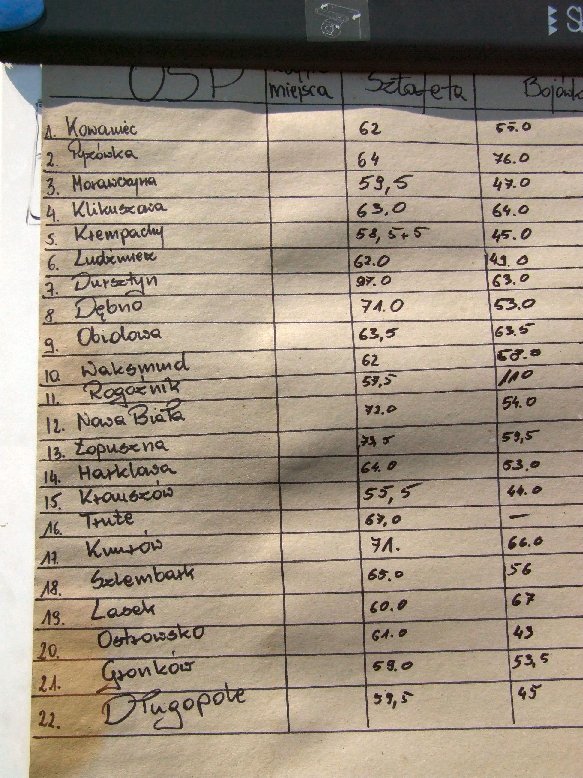 OSP miejsca Sztafeta Bojówk
1. Kowaniec 62 55.0
2. Pyzówka 64 76.0
3. Morawczyna 59,5 47.0
4. Klikuszowa 63.0 64.0
5. Krempachy 58,5+5 45.0
6. Ludźmierz 62.0 49.0
7. Dursztyn 97.0 63.0
8. Dębno 71.0 53.0
9. Obidowa 63,5 63.5
10. Waksmund 62 58.0
11. Rogoźnik 57,5 110
12. Nowa Biała 72.0 54.0
13. Łopuszna 73,5 59,5
14. Harklowa 64.0 53.0
15. Krauszów 55,5 44.0
16. Trute 67,0 —
17. Knurów 71. 66.0
18. Szlembark 65.0 56
19. Lasek 60.0 67
20. Ostrowsko 61.0 49
21. Gronków 59.0 53,5
22. Długopole 59,5 45